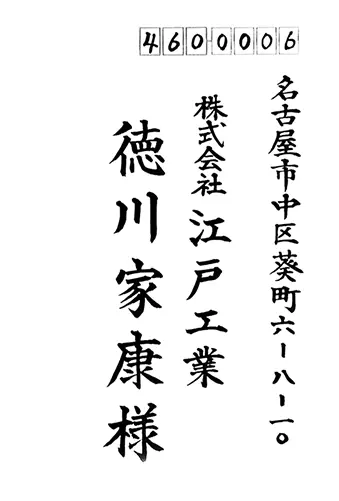 4600006
名古屋市中区葵町六ー八ー一〇
株式会社 江戸工業
徳川家康様